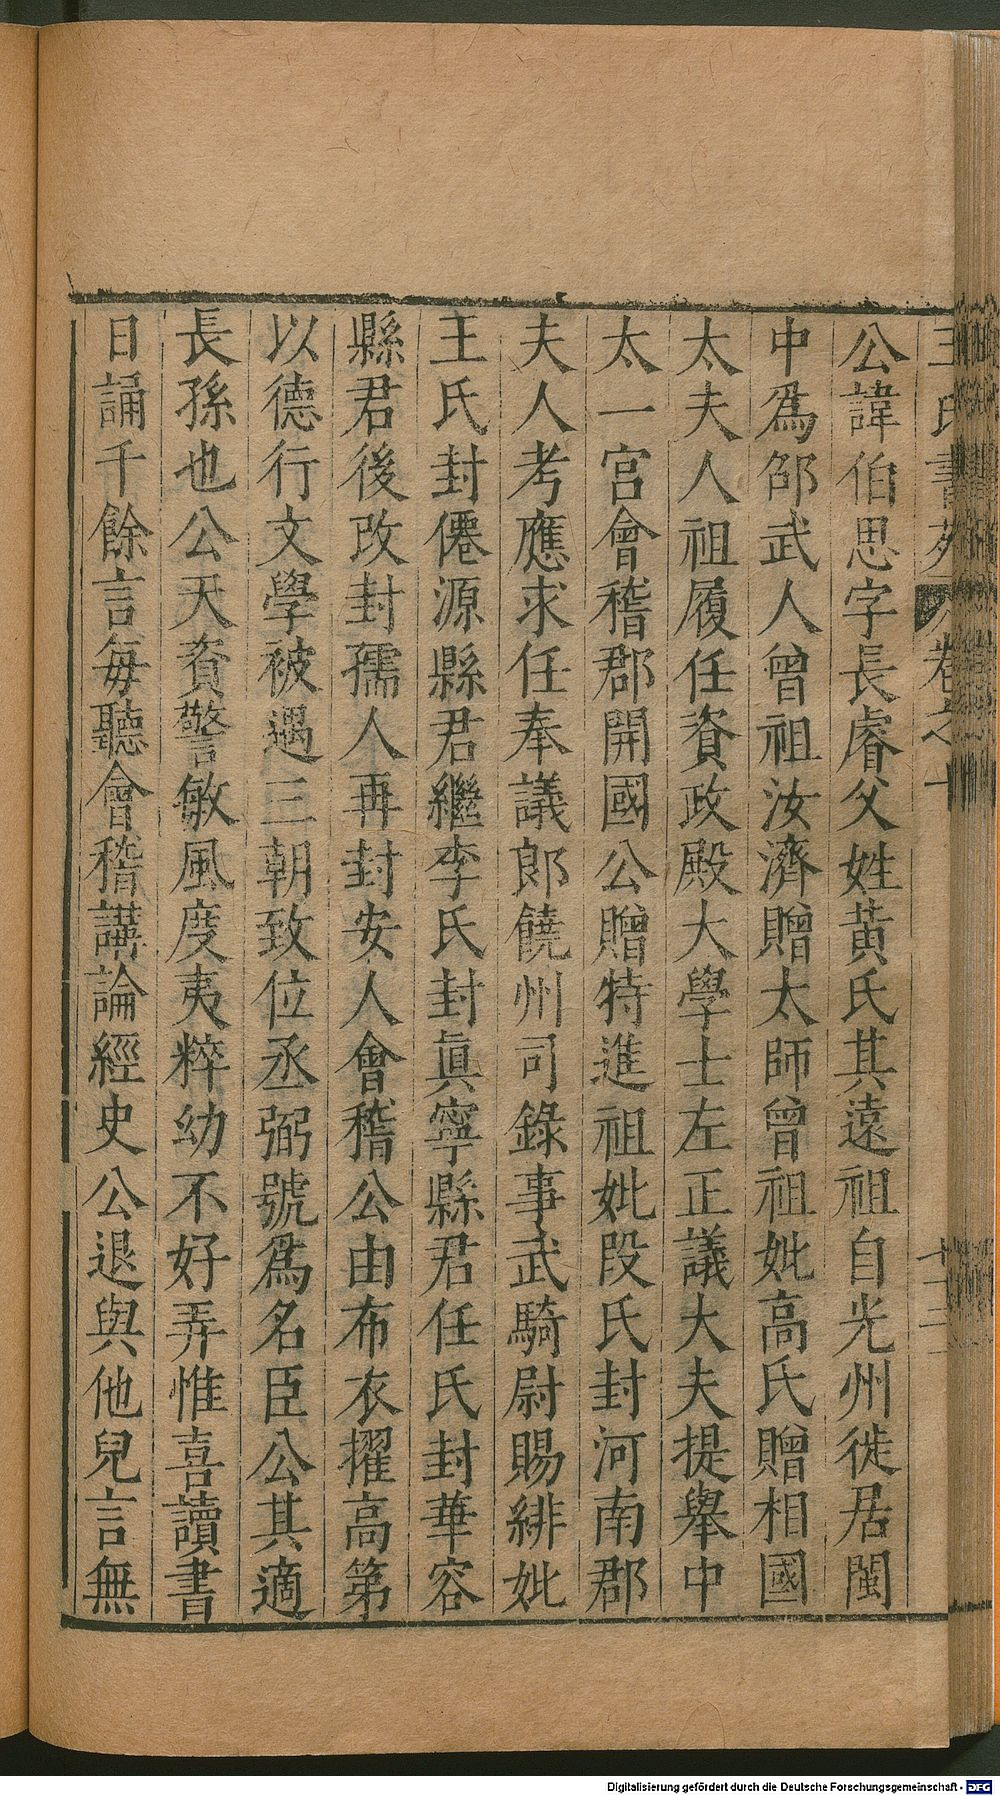 王氏書苑 卷之十 十三
公諱伯思字長睿父姓黃氏其遠祖自光州徙居閩
中爲邵武人曾祖汝濟贈太師曾祖妣高氏贈相國
太夫人祖履任資政殿大學士左正議大夫提舉中
太一宮會稽郡開國公贈特進祖妣段氏封河南郡
夫人考應求任奉議郎饒州司錄事武騎尉賜緋妣
王氏封僊源縣君繼李氏封眞寧縣君任氏封華容
縣君後改封孺人再封安人會稽公由布衣擢高第
以德行文學被遇三朝致位丞弼號爲名臣公其適
長孫也公天資警敏風度夷粹幼不好弄惟喜讀書
日誦千餘言每聽會稽講論經史公退與他兒言無
Digitalisierung gefördert durch die Deutsche Forschungsgemeinschaft - DFG